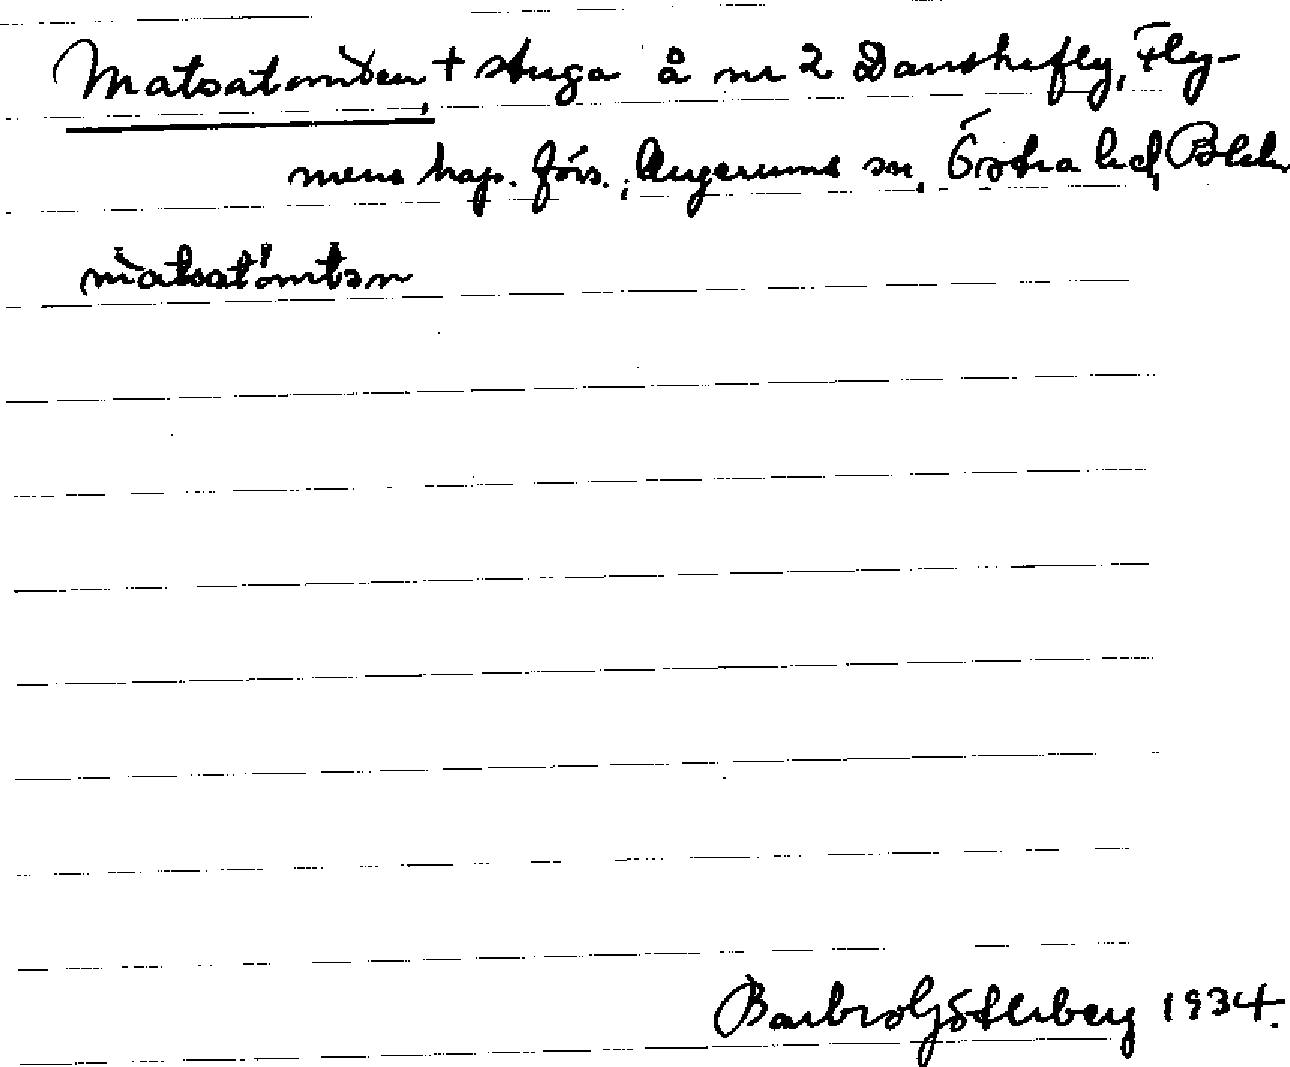 Matsatomten, † stuga å nr 2 Danskefly, Fly-
mens kap. förs., Augerums sn. Östra hd, Blek.
matsatòmtən
Barbro Götherberg 1934.